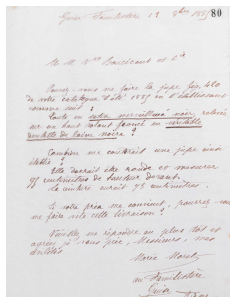 Guise Familistère 19 8bre 1885
80
M M Vve Boucicaut et Cie
Pouvez-vous me faire la jupe
de votre catalogue d'été 1885 en l'établissant
comme suit :
Toute en satin merveilleux noir, relevée
sur un haut volant formé en véritable
dentelle de laine noire ?
Combien me coûterait une jupe ainsi
établie ?
Elle devrait être ronde et mesurer
95 centimètres de hauteur devant.
La ceinture aurait 75 centimètres.
Si votre prix me convient, pourrez-vous
me faire vite cette livraison ?
Veuillez me répondre au plus tôt et
agréer, je vous prie, Messieurs, mes
civilités
Marie Moret
au Familistère
Guise
Aisne